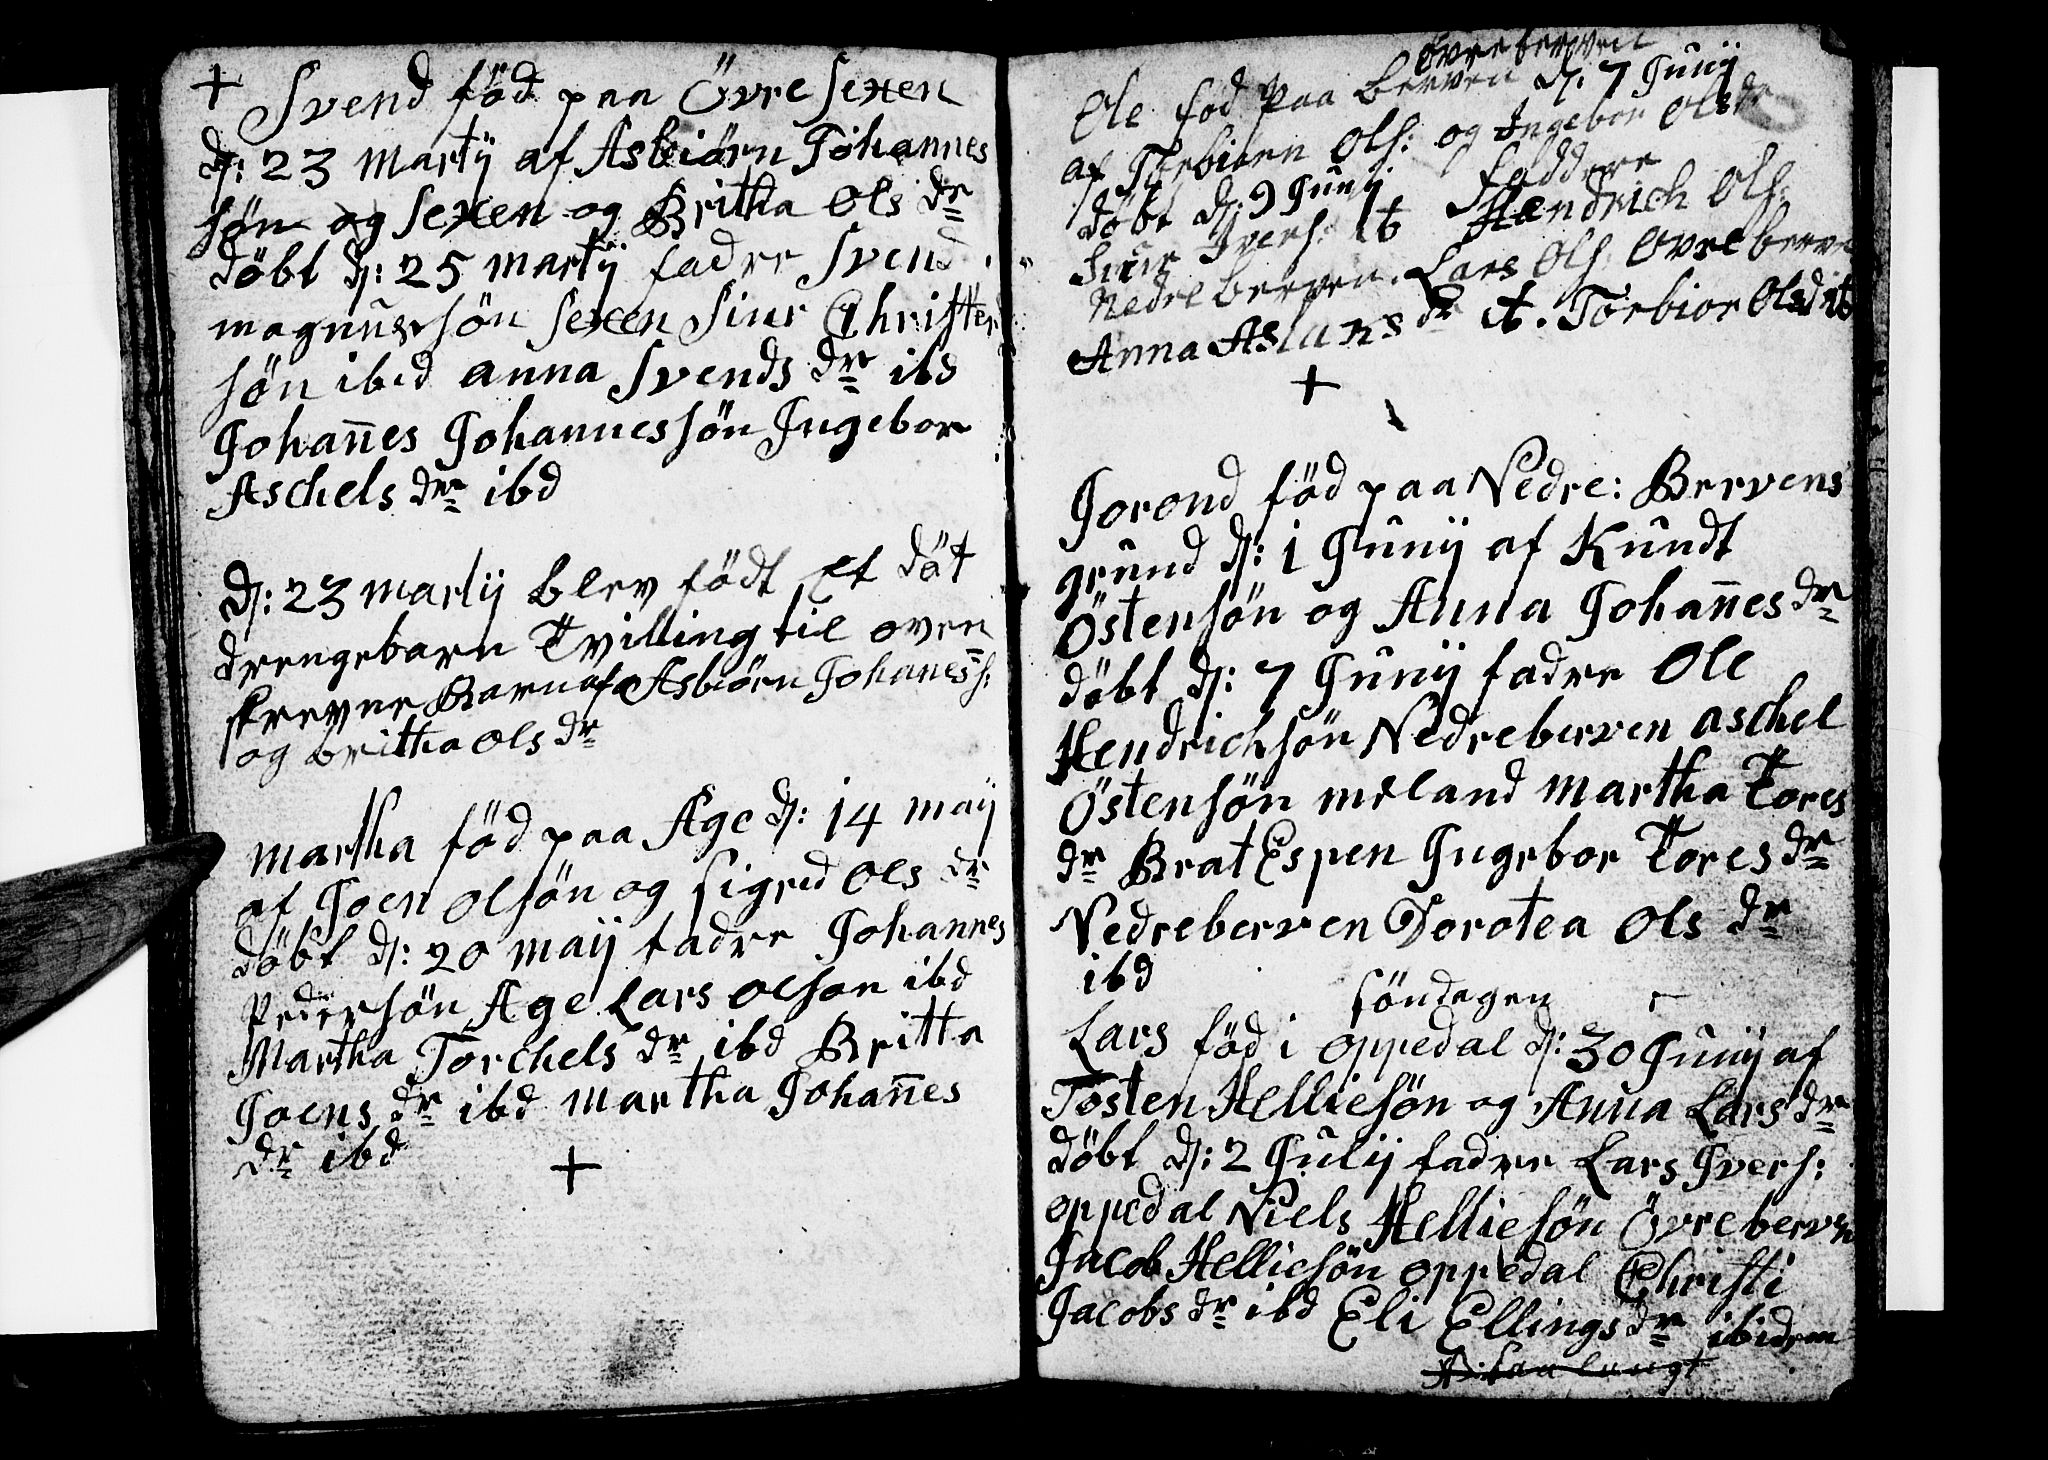 + Svend föd paa Övre Sexen
dj: 23 martij af Asbiörn Johannes
sön og Sexen og Britha Ols dr
döbt dj: 25 martij fadre Svend
magnussön Sexen Siur Christen
sön ibid anna Svends dr ibd
Johañes Johannessön Ingebor
Aschels dr ibd
dj: 23 martij blev födt Et döt
drengebarn Tvilling til oven
skrevne Barn af Asbiörn Johanes s:
og britha ols dr
martha föd paa Age dj: 14 maij
af Joen olsön og Sigrid Ols dr
döbt dj: 20 maij fadre Johannes
Pedersön Age Lars olson ibd
Martha Torchels dr ibd Britta
Joens dr ibd martha Johañes
dr ibd
+
övre berven
Ole föd paa berven dj: 7 Junij
af Torbiörn Ols: og Ingebor Ols dr
döbt dj 9 Junij faddere
Siur Ivers: it Hendrich Ols:
Nedre berven. Lars Ols Övre berve
Anna Aslaks dr it. Torbior Olsd it
+
Jorond föd paa Nedre: Bervens
grund dj: 1 Junij af Kundt
Östensön og Anna Johañes dr
döbt dj: 7 Junij fadre Ole
Hendrichsön Nedreberven aschel
Östensön meland martha Tores
dr Brat Espen Ingebor Tores dr
Nedreberven Dorotea Ols dr
ibd
söndagen
Lars föd i oppedal dj: 30 Junij af
Tosten Helliesön og Anna Lars dr
döbt dj: 2 Julij fadre Lars Ivers:
oppedal Niels Helliesön Övreberven
Jacob Helliesön oppedal Christi
Jacobs dr ibd Eli Ellings dr ibidem
saa langt